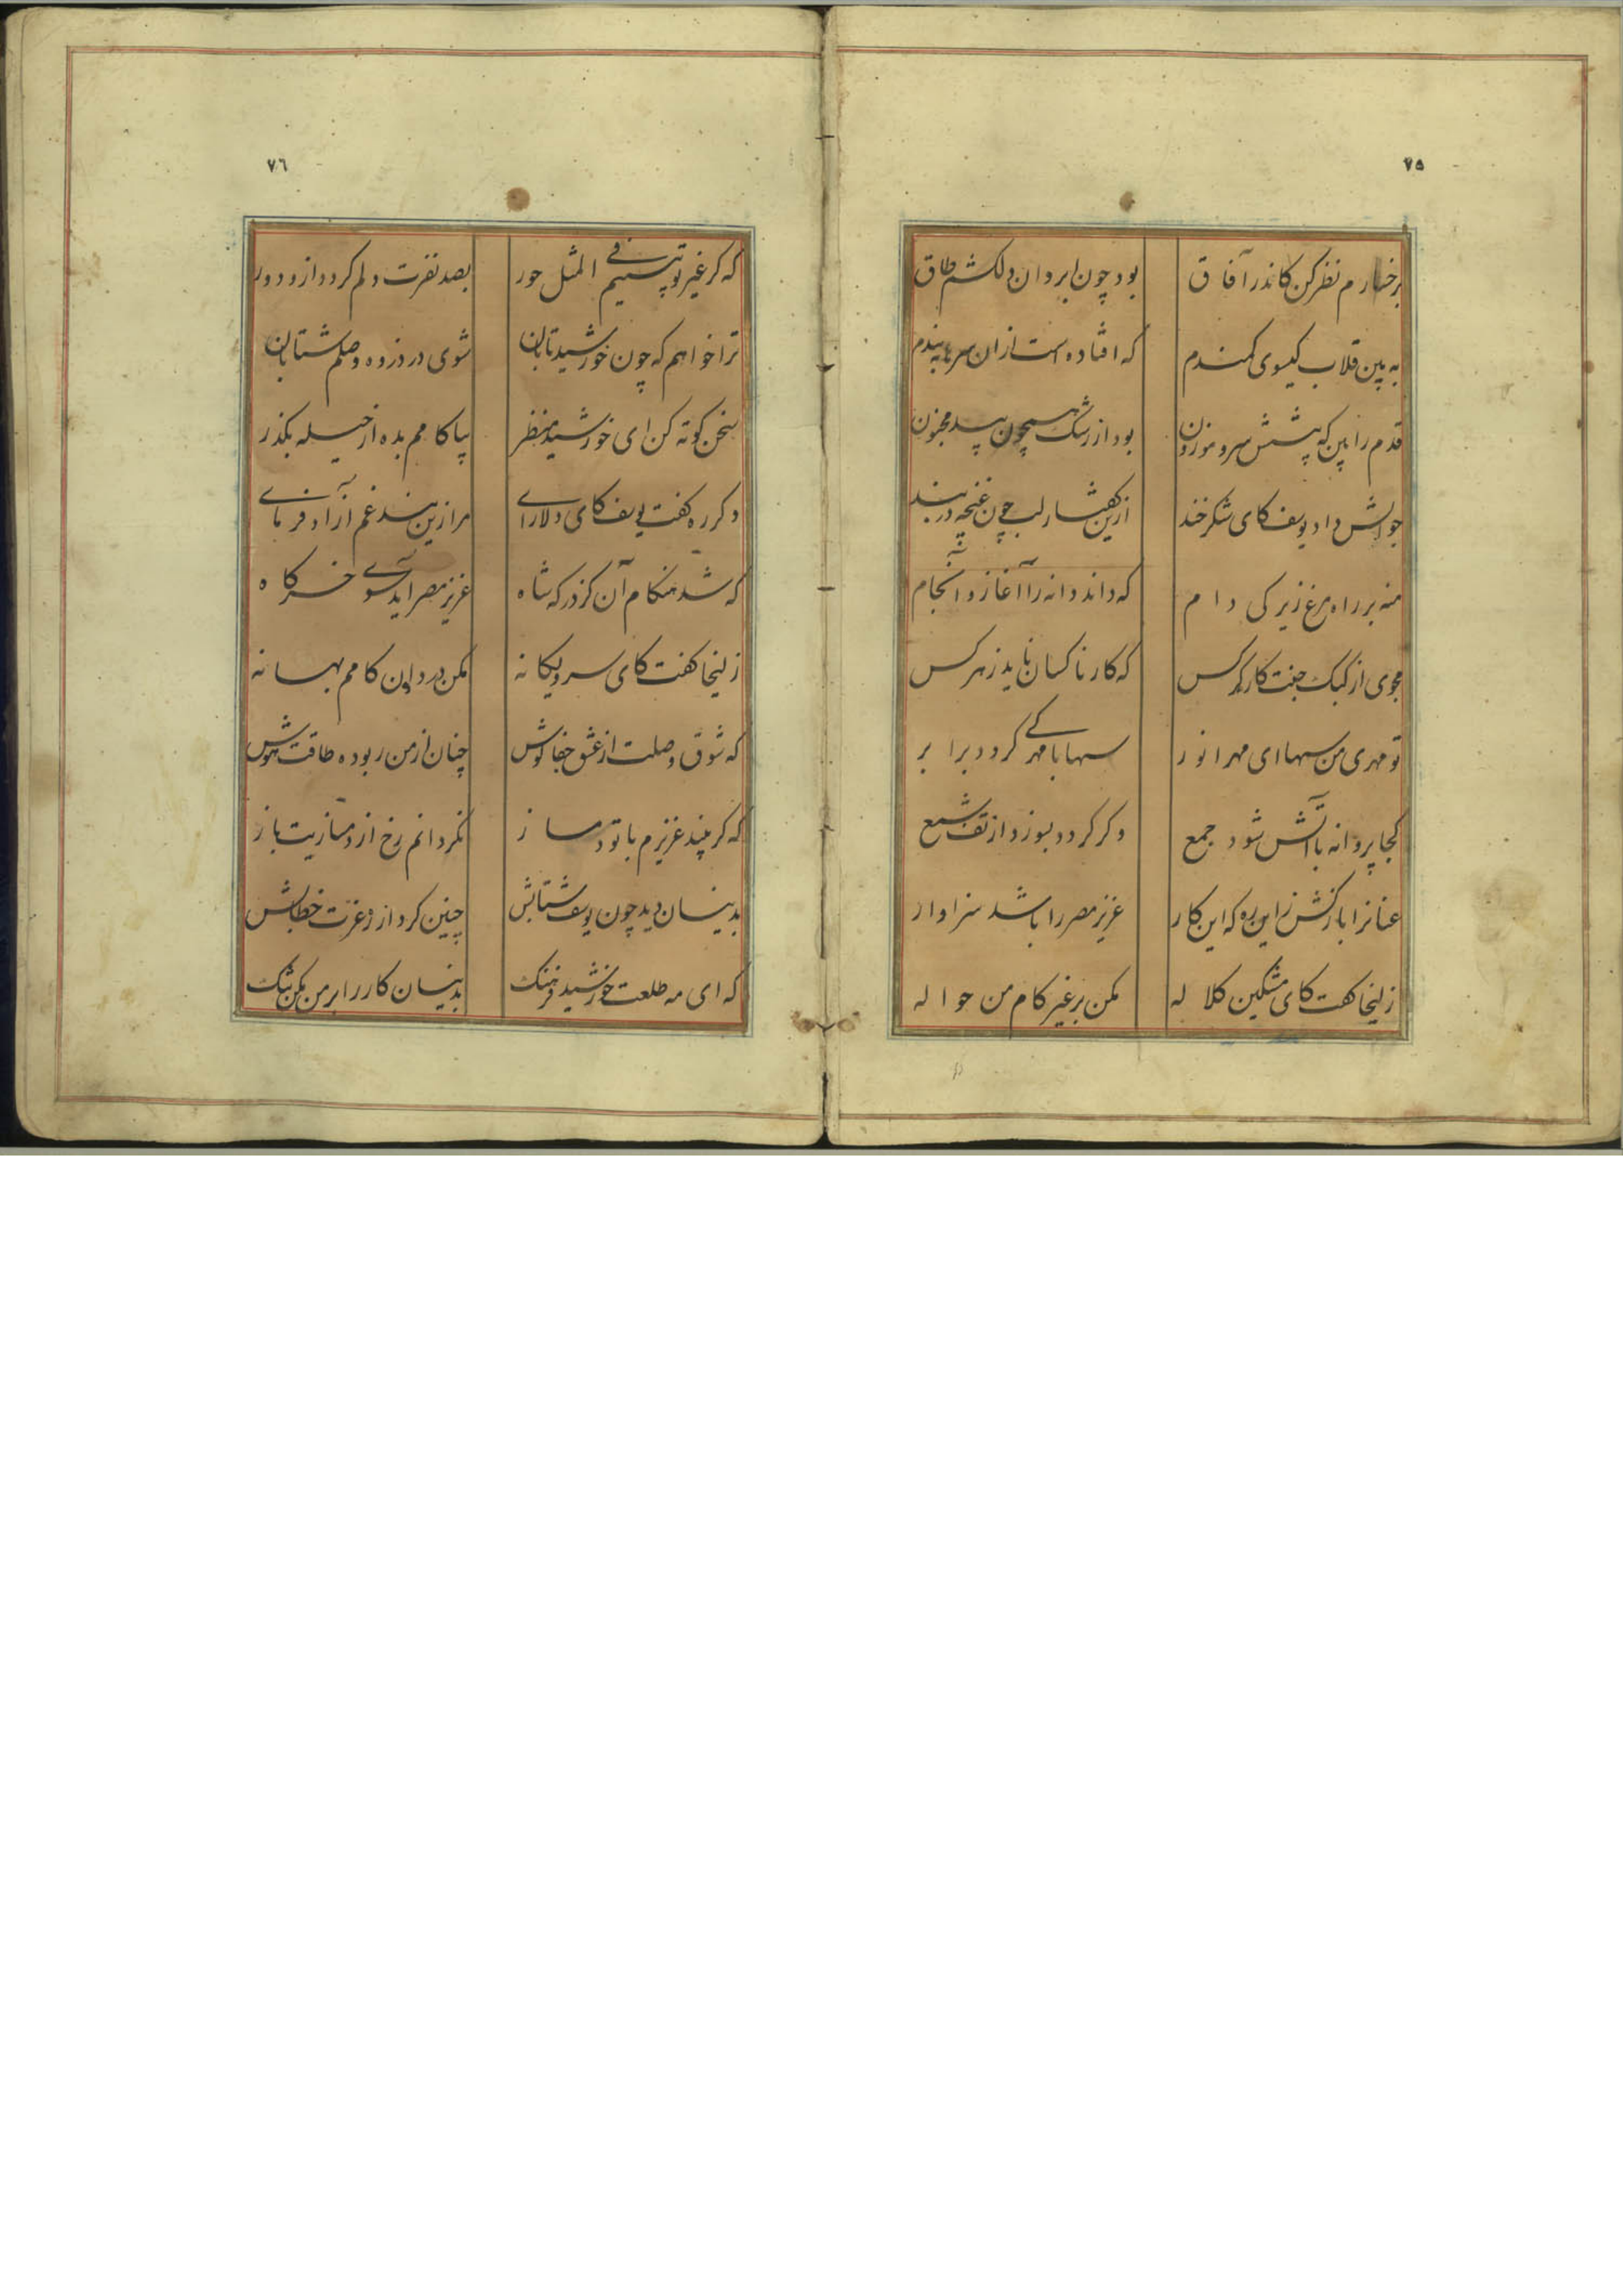 ۷۵
برخسارم نظر کن کاندر آفاق بود چون ابروان دلکشم طاق
به بین قلاب کیسوی کمندم که افتاده است ازان سر تا به بندم
قدم را بین که پیشش سرو موزون بود از رشک همچون بید مجنون
جوابش داد یوسف کای شکرخند ازین کفتار لب چون غنچه در بند
منه بر راه مرغ زیرکی دام که داند دانه را آغاز و انجام
مجوی از کبک جفت کار کرکس که کار ناکسان ناید زهر کس
تو مهری من سها ای مهر انور سها با مهر کی کردد برابر
کجا پروانه با آتش شود جمع وکر کردد بسوزد از تف شمع
عنانرا باز کش زاین ره که این کار عزیز مصر را باشد سزاوار
زلیخا کفت کای مشکین کلاله مکن بر غیر کام من حواله
۷٦
که کر غیر تو بینم فی المثل حور بصد نفرت دلم کردد ازو دور
ترا خواهم که چون خورشید تابان شوی در ذروه وصلم شتابان
سخن کوته کن ای خورشید منظر بیا کامم بده از حیله بکذر
دکرره کفت یوسف کای دلارای مرا زین بند غم آزاد فرمای
که شد هنکام آن کز درکه شاه عزیز مصر آید سوی خرکاه
زلیخا کفت کای سرو یکانه مکن در دادن کامم بهانه
که شوق وصلت از عشق جفا کوش چنان از من ربوده طاقت و هوش
که کر بیند عزیزم با تو دمساز نکردانم رخ از دمسازیت باز
بدینسان دید چون یوسف شتابش چنین کرد از ره عزت خطابش
که ای مه طلعت خورشید فرهنک بدینسان کار را بر من مکن تنک